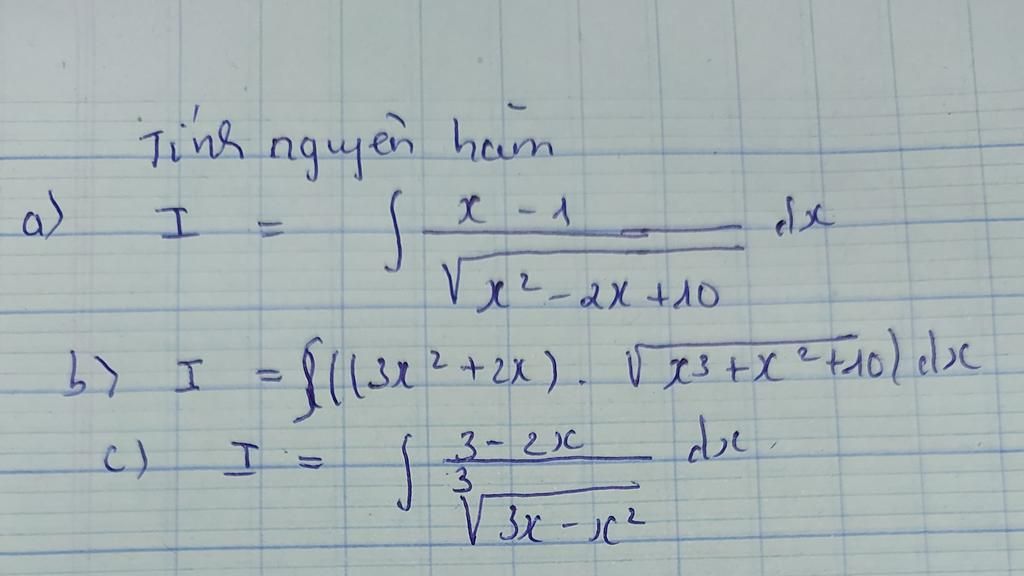 Tính nguyên hàm
a) I = ∫ (x - 1)/√(x² - 2x + 10) dx
b) I = ∫((3x² + 2x) . √(x³ + x² + 10)) dx
c) I = ∫ (3 - 2x)/∛(3x - x²) dx.